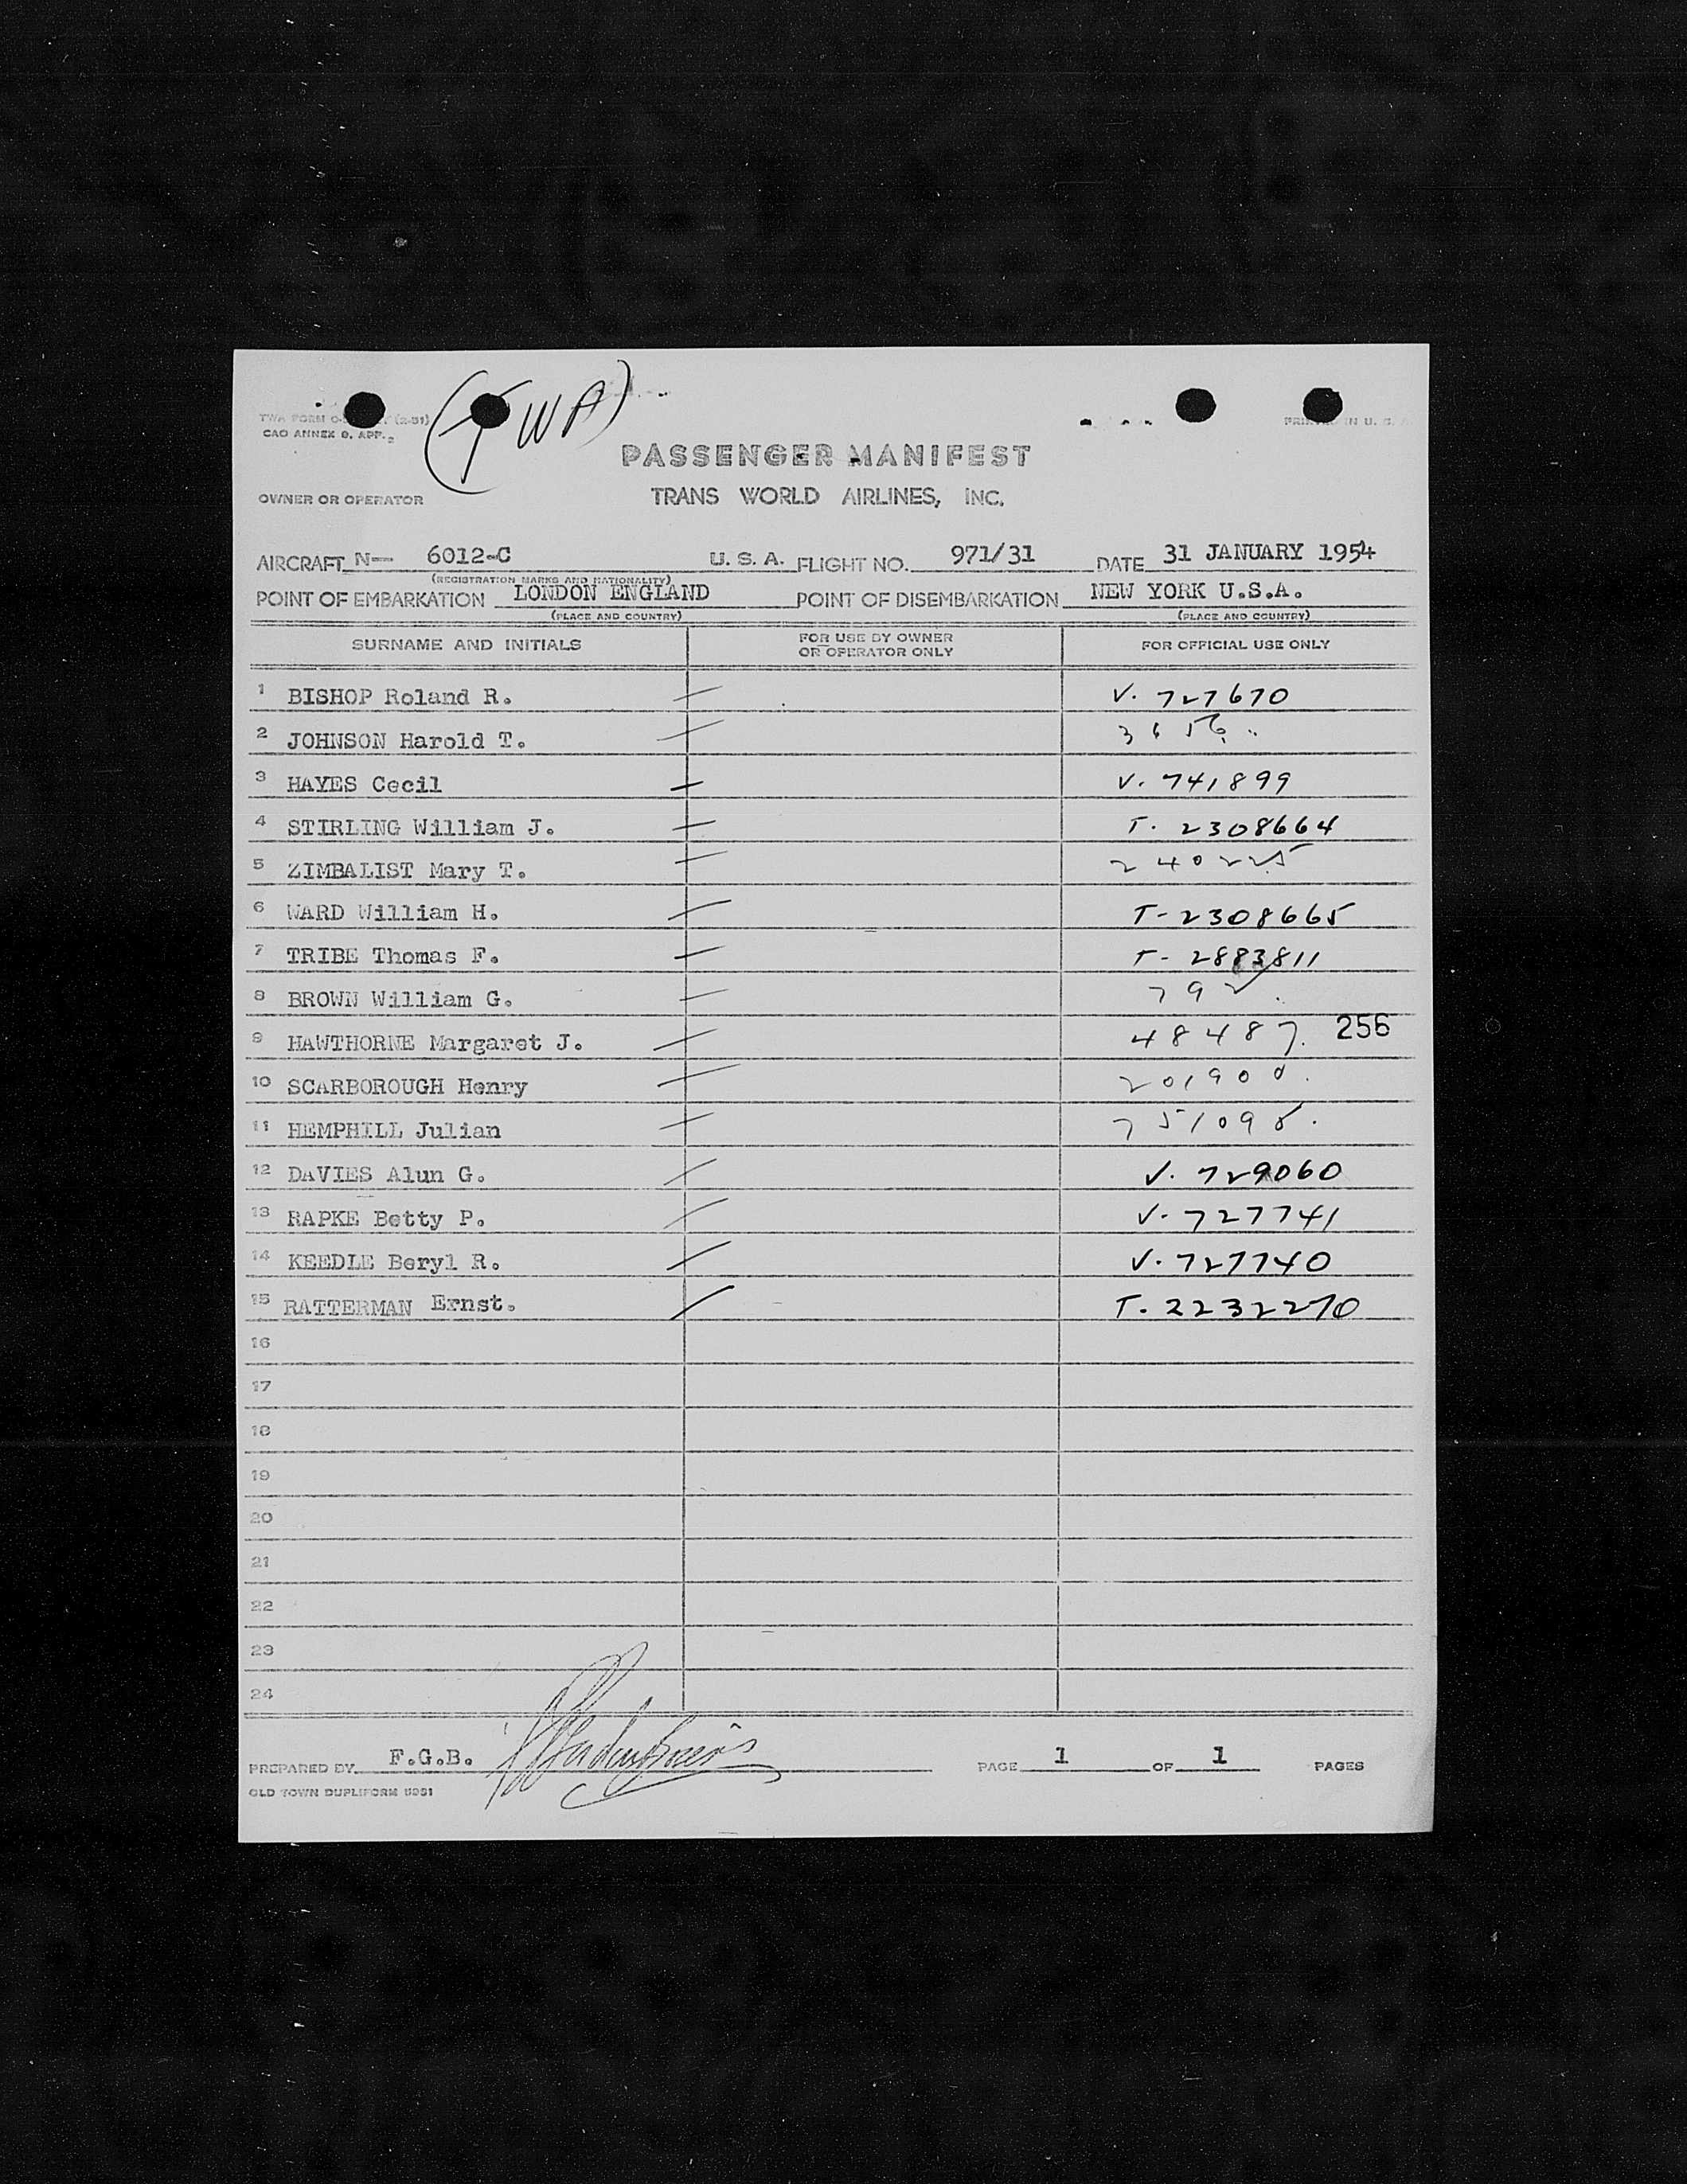 (TWA)
TWA FORM (2-51)
CAO ANNEX 9, APP.
PRINTED IN U. S. A
PASSENGER MANIFEST
OWNER OR OPERATOR TRANS WORLD AIRLINES, INC.
AIRCRAFT N— 6012-C U. S. A. FLIGHT NO. 971/31 DATE 31 JANUARY 1954
(REGISTRATION MARKS AND NATIONALITY)
POINT OF EMBARKATION LONDON ENGLAND POINT OF DISEMBARKATION NEW YORK U.S.A.
(PLACE AND COUNTRY) (PLACE AND COUNTRY)
SURNAME AND INITIALS FOR USE BY OWNER OR OPERATOR ONLY FOR OFFICIAL USE ONLY
1 BISHOP Roland R. V. 727670
2 JOHNSON Harold T. 3656
3 HAYES Cecil V. 741899
4 STIRLING William J. T. 2308664
5 ZIMBALIST Mary T. 240225
6 WARD William H. T-2308665
7 TRIBE Thomas F. T- 2883811
8 BROWN William G. 792
9 HAWTHORNE Margaret J. 48487. 256
10 SCARBOROUGH Henry 201900.
11 HEMPHILL Julian 751098.
12 DAVIES Alun G. V. 729060
13 RAPKE Betty P. V-727741
14 KEEDLE Beryl R. V.727740
15 RATTERMAN Ernst. T. 2232270
16
17
18
19
20
21
22
23
24
PREPARED BY F.G.B. PAGE 1 OF 1 PAGES
OLD TOWN DUPLIFORM 5951